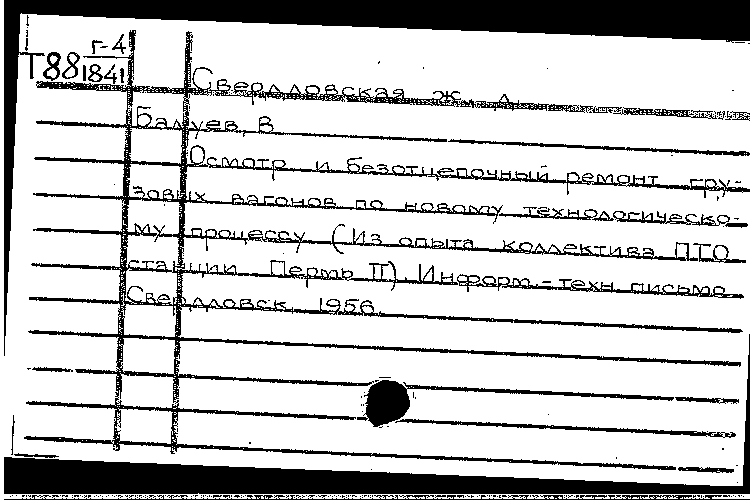 Т88 г-4
1841
Свердловская ж. д.
Балуев, В.
Осмотр и безотцепочный ремонт гру-
зовых вагонов по новому технологическо-
му процессу (Из опыта коллектива ПТО
станции Пермь II) Информ.-техн. письмо
Свердловск, 1956.